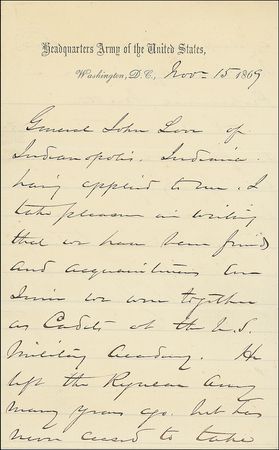 Headquarters Army of the United States,
Washington, D.C., Nov. 15 1869
General John Love of
Indianapolis. Indiana.
having applied to me. I
take pleasure in writing
that we have been friends
and acquaintances ever
since we were together
as Cadets at the U.S.
Military Academy. He
left the Regular Army
many years ago. but has
never ceased to take